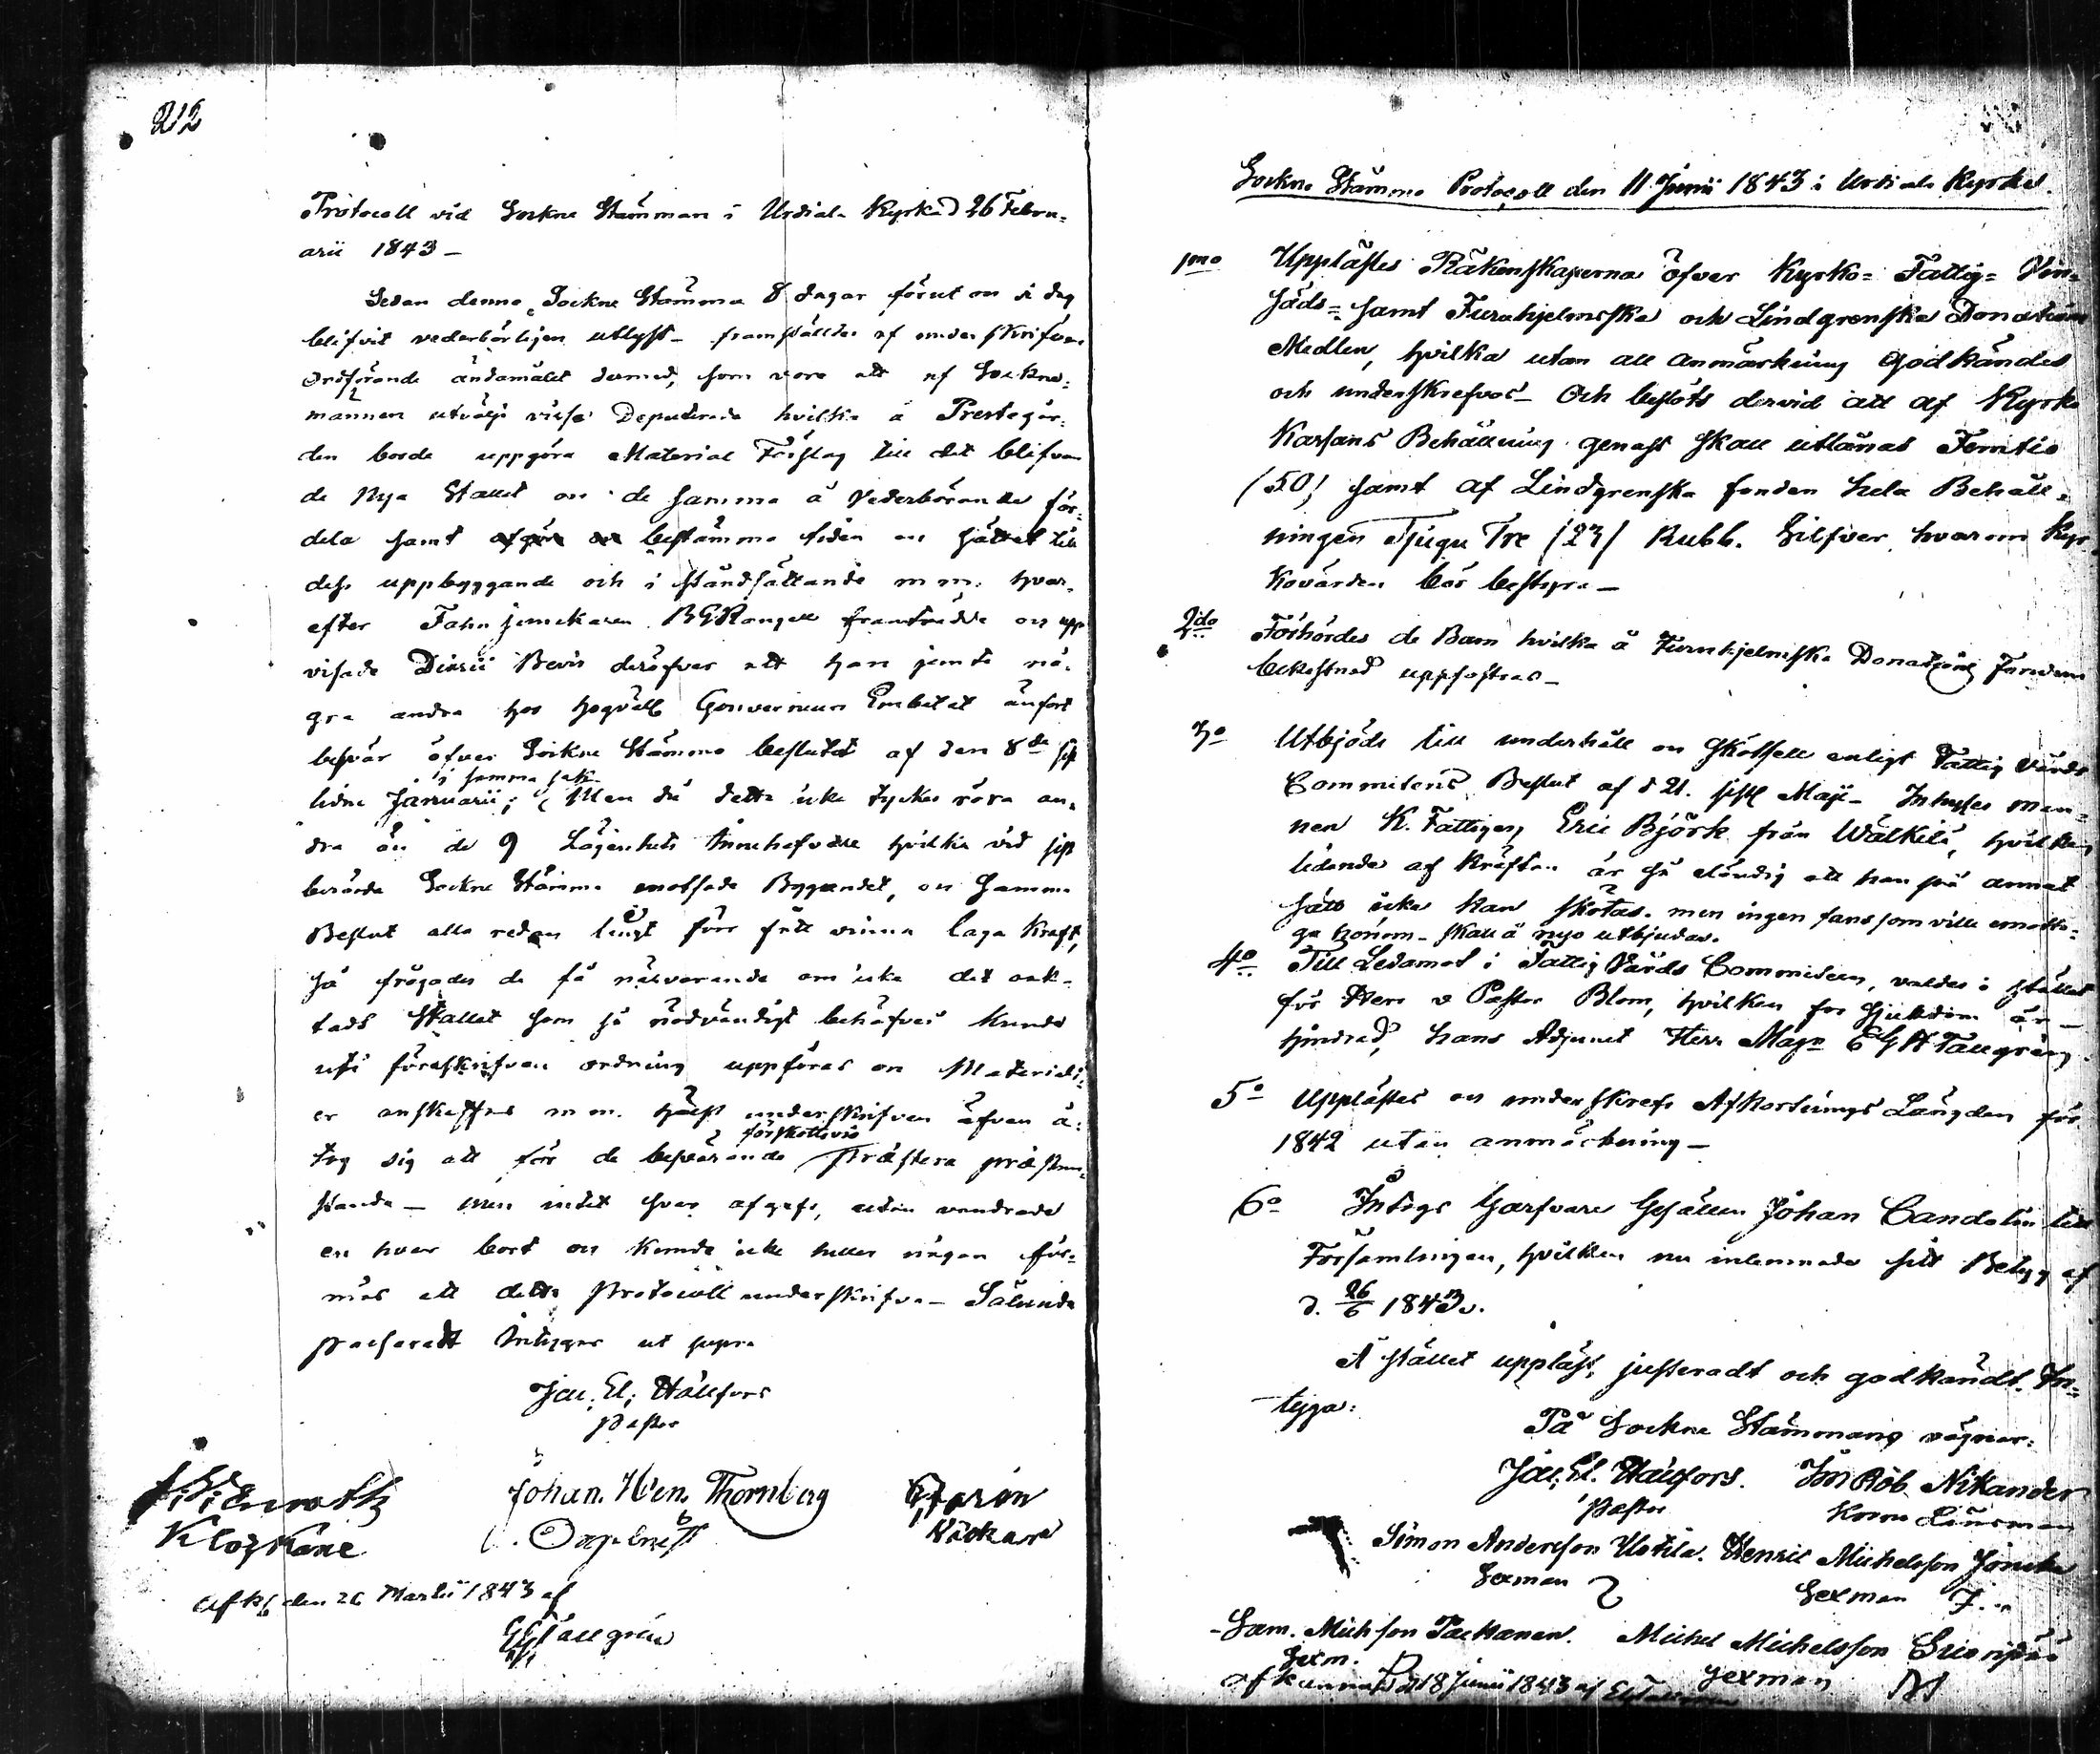 212
Protocoll vid Sockne Stämman i Urdiala Kyrka d 26 Febru-
arii 1843 –
Sedan denne Sockne Stämma 8 dagar förut on de dag
blifvit vederbörligen utlyst – framställdes af underskrifven
Ordförande ändamålet dermed, som vore att af Sockne-
männen utvälja visse Deputerade hvilka å Prestegår-
den borde uppgöra Material Förslag till det blifvan
de Nya Stallet on de samma å Vederbörande för-
dela samt bestämma tiden on sättet till
dess uppbyggande och i ståndsättande m m: hvar-
efter Fahnjunckaren framträdde on upp
visade Diarii Bevis deröfver att han jemte nå-
gra andra hos högvälb Gouverneurs Embetet anfört
besvär öfver Sockne Stämmo beslutet af den 8de sist
lidne Januarii; i samma sak. Men då detta icke tyckes röra an-
dra än de 9 Lägenhets Innehafvare hvilka vid sist
berörde Sockne Stämma motsade Byggandet, on samma
Beslut alla redan längt förr fått vinna laga Kraft,
så frågades de få närvarande om icke det oak-
tadt Stallet som så nödvändigt behöfves kunde
uti föreskrifven ordning uppföras on Materiali-
er anskaffas m m. hälst underskrifven äfven å-
tog sig att för de besvärande förskottsvis præstera præstan-
standa – men intet svar afgafs, utan vandrade
en hvar bort on kunde icke heller någon för-
mås att detta Protocoll underskrifva – Sålunda
passeradt intygar ut supra
Jac. El. Hällfors
Pastor
Klockare
Johan. Hen. Thornberg
Orgelnist
Väckare
Afk. den 26 Martii 1843 af
Tallgrén
Sockne Stämmo Protocoll den 11 Junii 1843 i Urdiala Kyrka.
1mo Upplästes Räkenskaperna öfver Kyrko- Fattig- Vin-
säds- samt Furuhjelmska och Lindgrenska Donations
Medlen, hvilka utan all anmärkning godkändes
och underskrefvos – Och beslöts dervid att af Kyrko
Kassans Behållning genast skall utlånas Femtio
(50) samt af Lindgrenska fonden hela Behåll-
ningen Tjugu Tre (23) Rubb. Silfver, hvarom Kyr
kovärden bör bestyra –
2do Förhördes de Barn hvilka å Furuhjelmska Donations Fonden
bekostnad uppfostras –
3o Utbjöds till underhåll on skötsell enligt Fattig Vårds
Commiteens Beslut af d 21. sistl Maji – Inhyses man-
nen K. Fattigen Eric Björk från Wälkilä, hvilken
lidande af kräftan är så eländig att han på annat
sätt icke kan skötas. men ingen fans som ville emotta-
ga honom – skall å nyo utbjudas.
4o Till Ledamot i Fattig Vårds Commiteen, valdes i stället
för Herr v Pastor Blom, hvilken for sjukdom är
hindrad, hans Adjunct Herr Mag. Tallgrén
5o Upplästes on underskrefs Afkortnings Längden för
1842 utan anmärkning –
6o Intogs Garfvare Gesällen Johan Candolin till
Församlingen, hvilken nu inlemnade sitt Betyg af
d. 26/6 1843.
A stället uppläst, justeradt och godkändt. In-
tyga:
På Sockne Stämmans vägnar:
Jac. El. Hällfors.
Pastor
Rob. Nikander
Krono Länsman
Simon Andersson Uotila.
Sexman
Henric Michelsson
Sexman
Sam. Michson Packanen.
Sexm.
Michel Michelsson
Sexman
afkunnadt d 18 Junii 1843 af